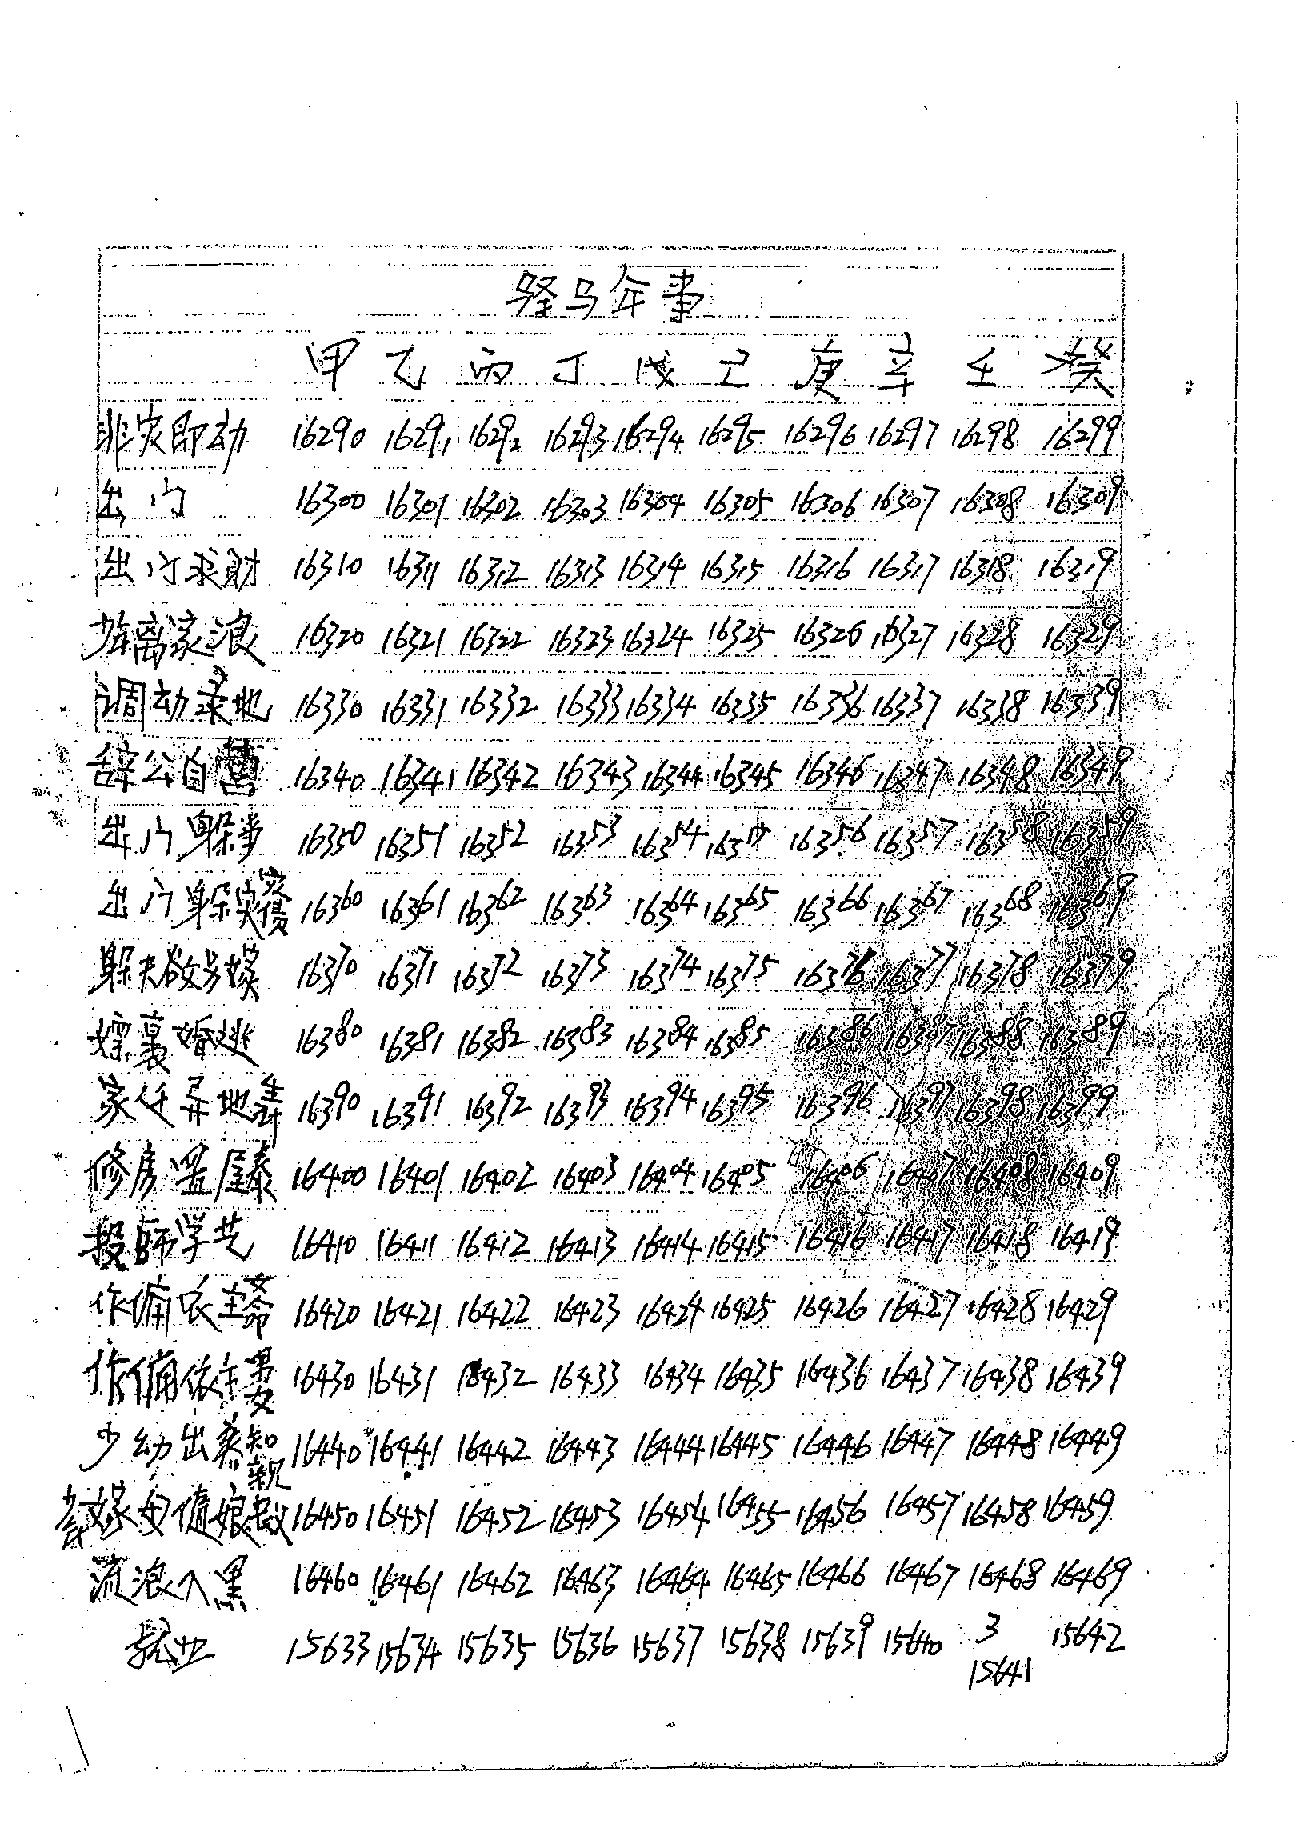 驿马年事
甲 乙 丙 丁 戊 己 庚 辛 壬 癸
非灾即动 16290 16291 16292 16293 16294 16295 16296 16297 16298 16299
出门 16300 16301 16302 16303 16304 16305 16306 16307 16308 16309
出门求财 16310 16311 16312 16313 16314 16315 16316 16317 16318 16319
离家浪 16320 16321 16322 16323 16324 16325 16326 16327 16328 16329
调动录地 16330 16331 16332 16333 16334 16335 16336 16337 16338 16339
辞公自营 16340 16341 16342 16343 16344 16345 16346 16347 16348 16349
出门躲事 16350 16351 16352 16353 16354 16355 16356 16357 16358 16359
出门躲灾 16360 16361 16362 16363 16364 16365 16366 16367 16368 16369
躲夫欲另嫁 16370 16371 16372 16373 16374 16375 16376 16377 16378 16379
婚逃 16380 16381 16382 16383 16384 16385 16386 16387 16388 16389
家迁异地 16390 16391 16392 16393 16394 16395 16396 16397 16398 16399
修房盖屋 16400 16401 16402 16403 16404 16405 16406 16407 16408 16409
投师学艺 16410 16411 16412 16413 16414 16415 16416 16417 16418 16419
作傭依主女命 16420 16421 16422 16423 16424 16425 16426 16427 16428 16429
作傭依主男女 16430 16431 16432 16433 16434 16435 16436 16437 16438 16439
少幼出 知親 16440 16441 16442 16443 16444 16445 16446 16447 16448 16449
嫁 傭娘 16450 16451 16452 16453 16454 16455 16456 16457 16458 16459
流浪入黑 16460 16461 16462 16463 16464 16465 16466 16467 16468 16469
15633 15634 15635 15636 15637 15638 15639 15640 3 15642
15641